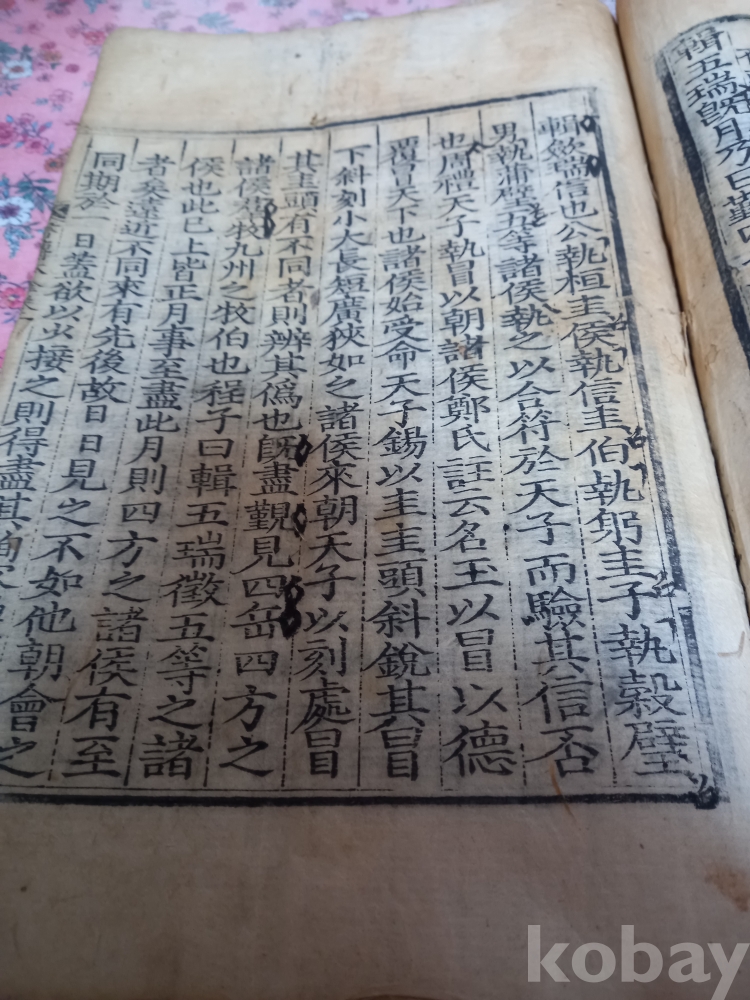 輯五瑞旣月乃日覲四
輯斂瑞信也公執桓圭侯執信圭伯執躬圭子執穀璧
男執蒲璧五等諸侯執之以合符於天子而驗其信否
也周禮天子執冒以朝諸侯鄭氏註云名玉以冒以德
覆冒天下也諸侯始受命天子錫以圭圭頭斜銳其冒
下斜刻小大長短廣狹如之諸侯來朝天子以刻處冒
其圭頭有不同者則辨其僞也旣盡覲見四岳四方之
諸侯羣牧九州之牧伯也程子曰輯五瑞徵五等之諸
侯也此已上皆正月事至盡此月則四方之諸侯有至
者矣遠近不同來有先後故日日見之不如他朝會之
同期於一日蓋欲以少接之則得盡其
kobay